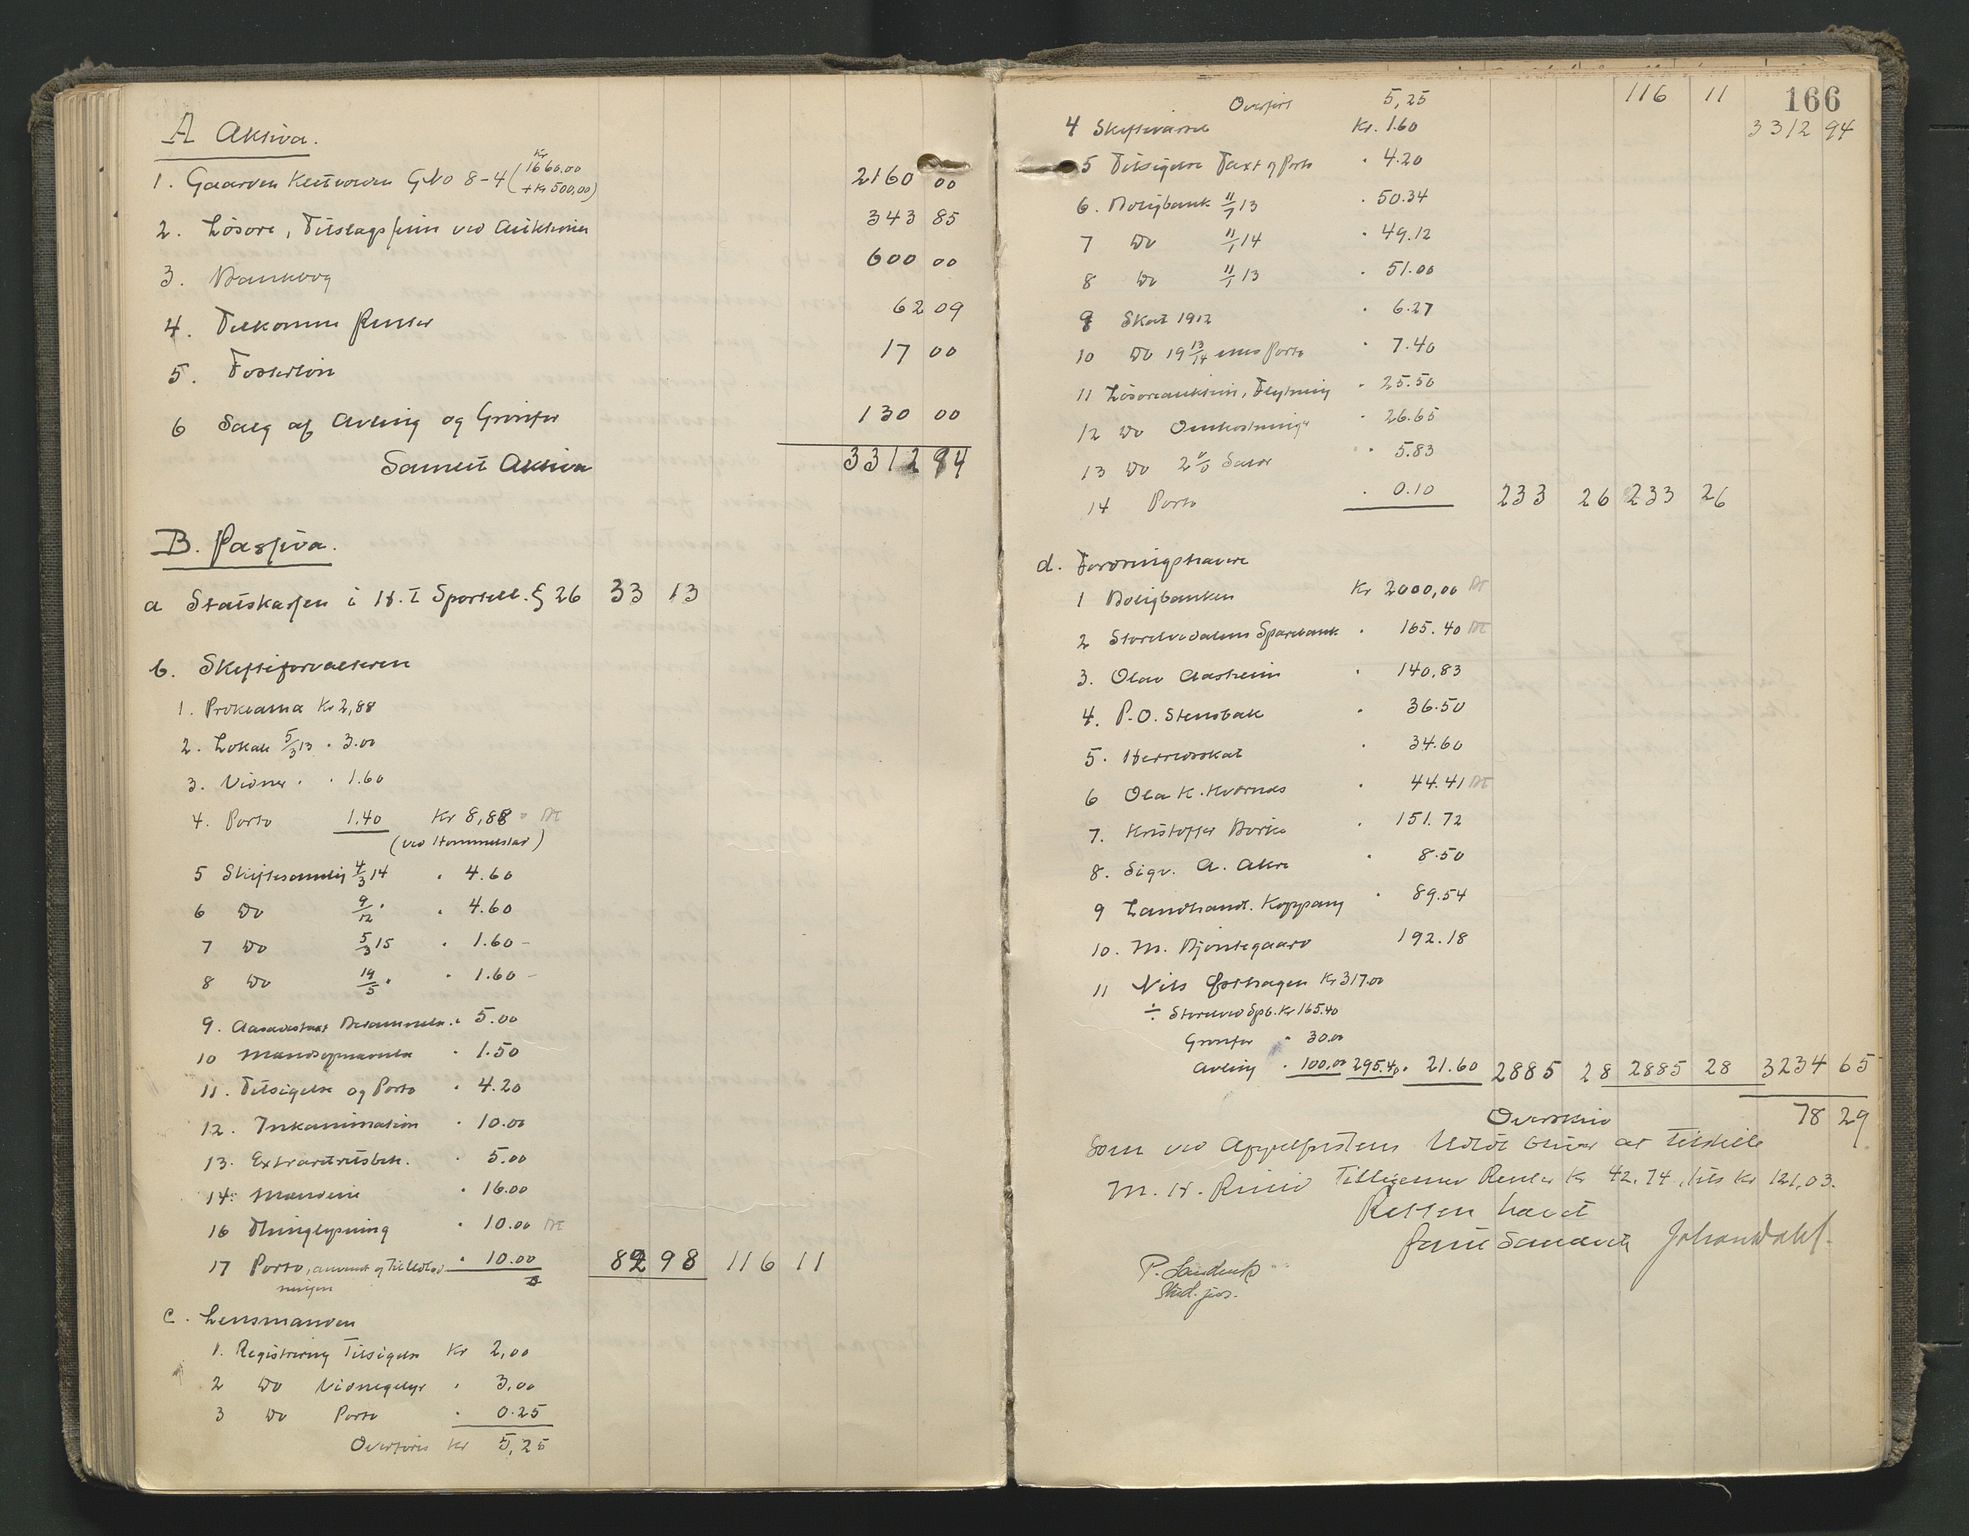 A Aktiva.
1. Gaarden Kletvolden GNo 8-4 (Kr 1660.00 + Kr 500,00) 2160 00
2. Lösöre, Tilslagssum ved Auktionen 343 85
3. Bankbog 600 00
4. Tilkomne Renter 62 09
5. Fosterlön 17 00
6 Salg af Avling og Grönfor 130 00
Samlet Aktiva 3312 94
B. Passiva.
a Statskassen i H. t Sportell. § 26 33 13
b. Skifteforvalteren
1. Proklama Kr 2,88
2. Lokale 5/3 13 " 3.00
3. Vidner " " 1.60
4. Porto 1.40 Kr 8,88 " Bet
(ved Hommelstad)
5 Skiftesamling 4/3 14 " 4.60
6 Do 9/12 " " 4.60
7 Do 5/3 15 " 1.60 -
8 Do 19/5 " " 1.60 -
9. Aasædestaxt Berammelse " 5.00
10 Mandsopnævnelse " 1.50
11. Tilsigelse og Porto " 4.20
12. Inkamination " 10.00
13. Extraretsbek. " 5.00
14. " 16.00
16 Thinglysning " 10.00 Bet
17 Porto, anvendt og til Udlodningen " 10.00 82 98 116 11
c. Lensmanden
1. Registrering Tilsigelse Kr 2,00
2 Do Vidnegebyr " 3,00
3 Do Porto " 0.25
Overföres Kr 5,25
166
Overfört 5,25 116 11
3312 94
4 Skiftevarsel Kr. 1.60
5 Tilsigelse Taxt og Porto " 4.20
6. Boligbank 11/7 13 " 50.34
7 Do 11/1 14 " 49.12
8 Do 11/1 13 " 51.00
9 Skat 1912 " 6.27
10 Do 19 13/14 med Porto " 7.40
11 Lösöreauktion, Flytning " 25.50
12 Do Omkostninger " 26.65
13 Do 2 % Salær " " 5.83
14 Porto " 0.10 233 26 233 26
d. Fordringshavere
1 Boligbanken Kr 2000,00 Bet
2 Storelvedalens Sparebank " 165.40 Bet
3. Olav Aasheim " 140,83
4. P. O. Stensbak " 36.50
5. Herredsskat " 34.60
6 Ola K. Kvernes " 44.41 Bet
7. Kristoffer Borke " 151.72
8. Sigv. A. Akre " 8.50
9 Landhand. Koppang " 89.54
10. M. Bjöntegaard 192.18
11 Nils Kr 317.00
÷ Storelved Spb. Kr 165.40
Grönfor " 30.00
Avling " 100.00 295.40 " 21.60 2885 28 2885 28 3234 65
Overskud 78 29
Som ved Appelfristens Udlöb bliver at tilstille
M. H. Tilligemed Renter Kr 42.74, tils Kr 121,03.
Retten hævet
Sandvik Johan Dahl.
P. Sandvik
Stud. jur.